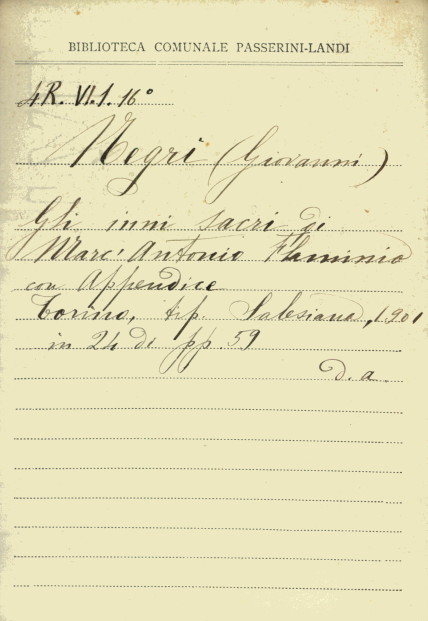 BIBLIOTECA COMUNALE PASSERINI-LANDI
4R. VI.1. 16°
Negri (Giovanni)
Gli inni sacri di
Marc'Antonio Flaminio
con Appendice
Torino, tip. Salesiana, 1901
in 24 di pp. 59
D. a.